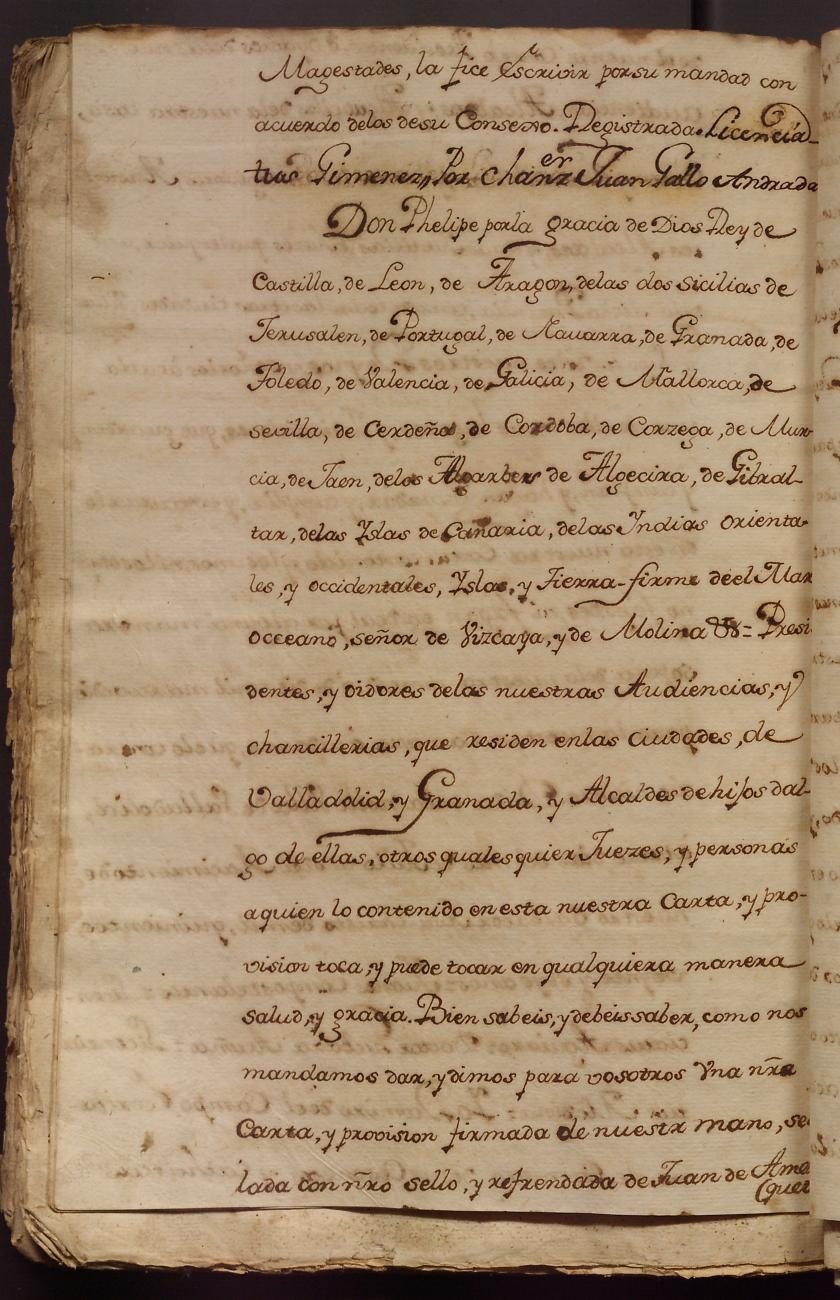 Magestades, la fice escrivir por su mandad con
acuerdo delos desu Consexo. Registrada. Licencia-
tus Gimenez, Por chanzer Juan Gallo Andrada
Don Phelipe porla gracia de Dios Rey de
Castilla, de Leon, de Aragon, delas dos Sicilias de
Jerusalen, de Portugal, de Navarra, de Granada, de
Toledo, de Valencia, de Galicia, de Mallorca, de
sevilla, de Cerdeña, de Cordoba, de Corzega, de Mur-
cia, de Jaen, delos Algarbes de Algecira, de Gibral-
tar, delas Yslas de Canaria, delas Yndias orienta-
les, y occidentales, Yslas, y Tierra-firme deel Mar
occeano, señor de Vizcaya, y de Molina &= Presi
dentes, y oidores delas nuestras Audiencias, y
chancillerias, que residen enlas ciudades, de
Valladolid, y Granada, y Alcaldes de hijos dal-
go de ellas, otros quales quier Juezes, y personas
a quien lo contenido en esta nuestra Carta, y pro-
vision toca, y puede tocar en qualquiera manera
salud, y gracia. Bien sabeis, y debeis saber, como nos
mandamos dar, y dimos para vosotros Vna nr̃a
Carta, y provision firmada de nuestr mano, se
lada con nr̃o sello, y refrendada de Juan de Ame
(quet